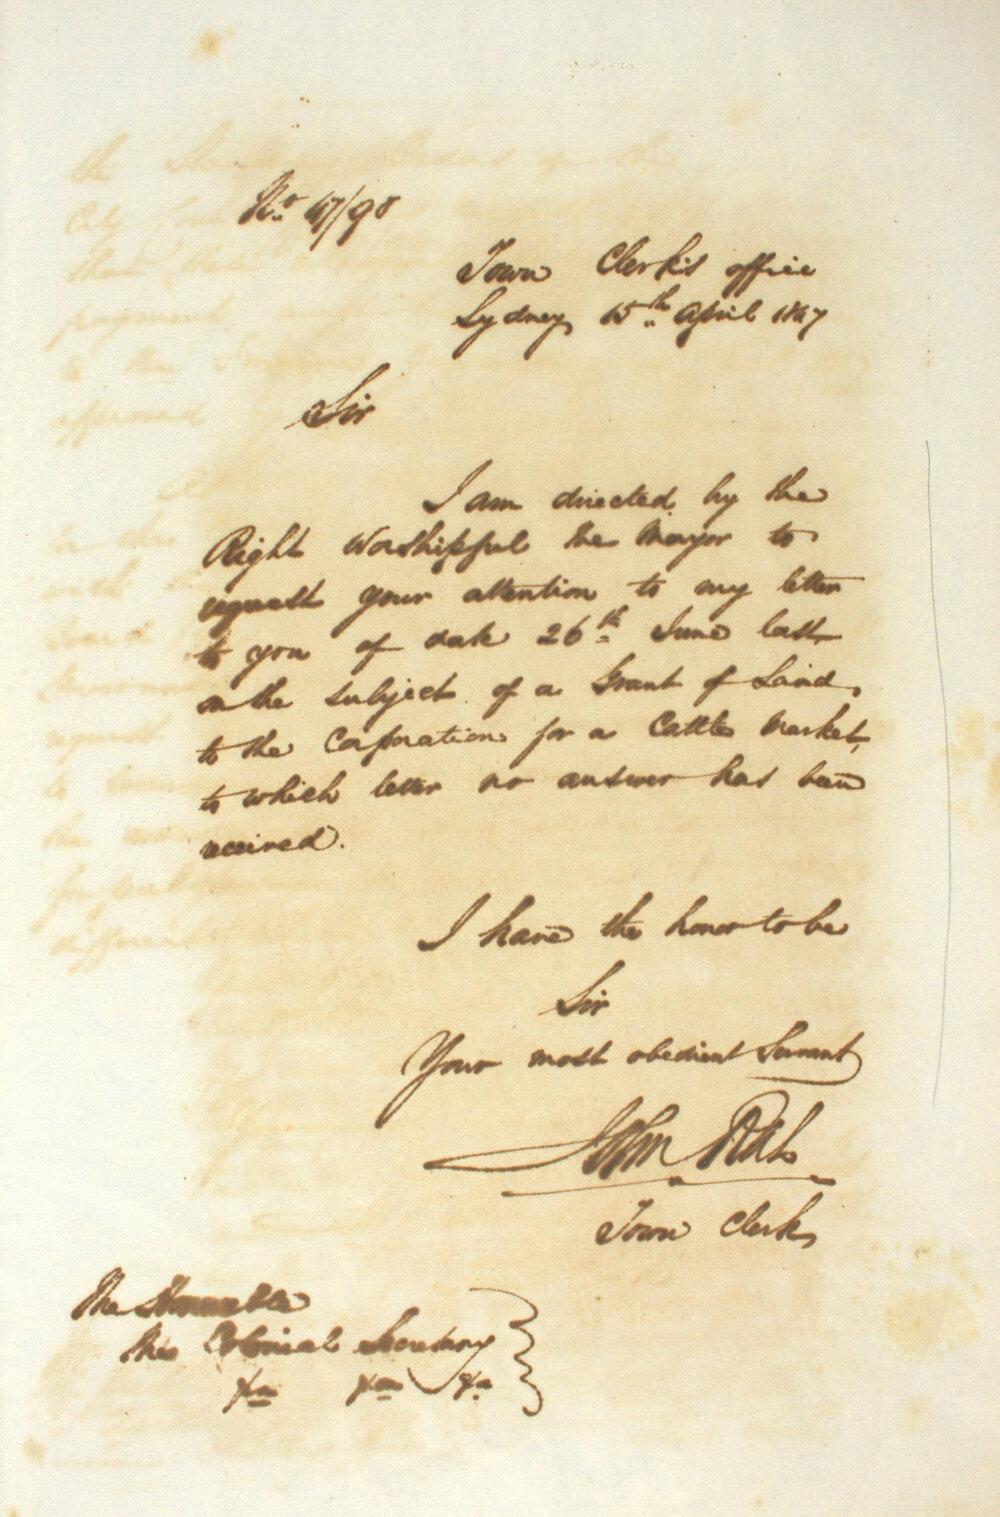 No. 47/98
Town Clerk's office
Sydney 15th April 1847
Sir
I am directed by the
Right Worshipful the Mayor to
request your attention to my letter
to you of date 26th June last
on the subject of a Grant of Land,
to the Corporation for a Cattle Market,
to which letter no answer has been
received.
I have the honor to be
Sir
Your most obedient Servant
John Rae
Town Clerk
The Honorable
The Colonial Secretary
&c &c &c